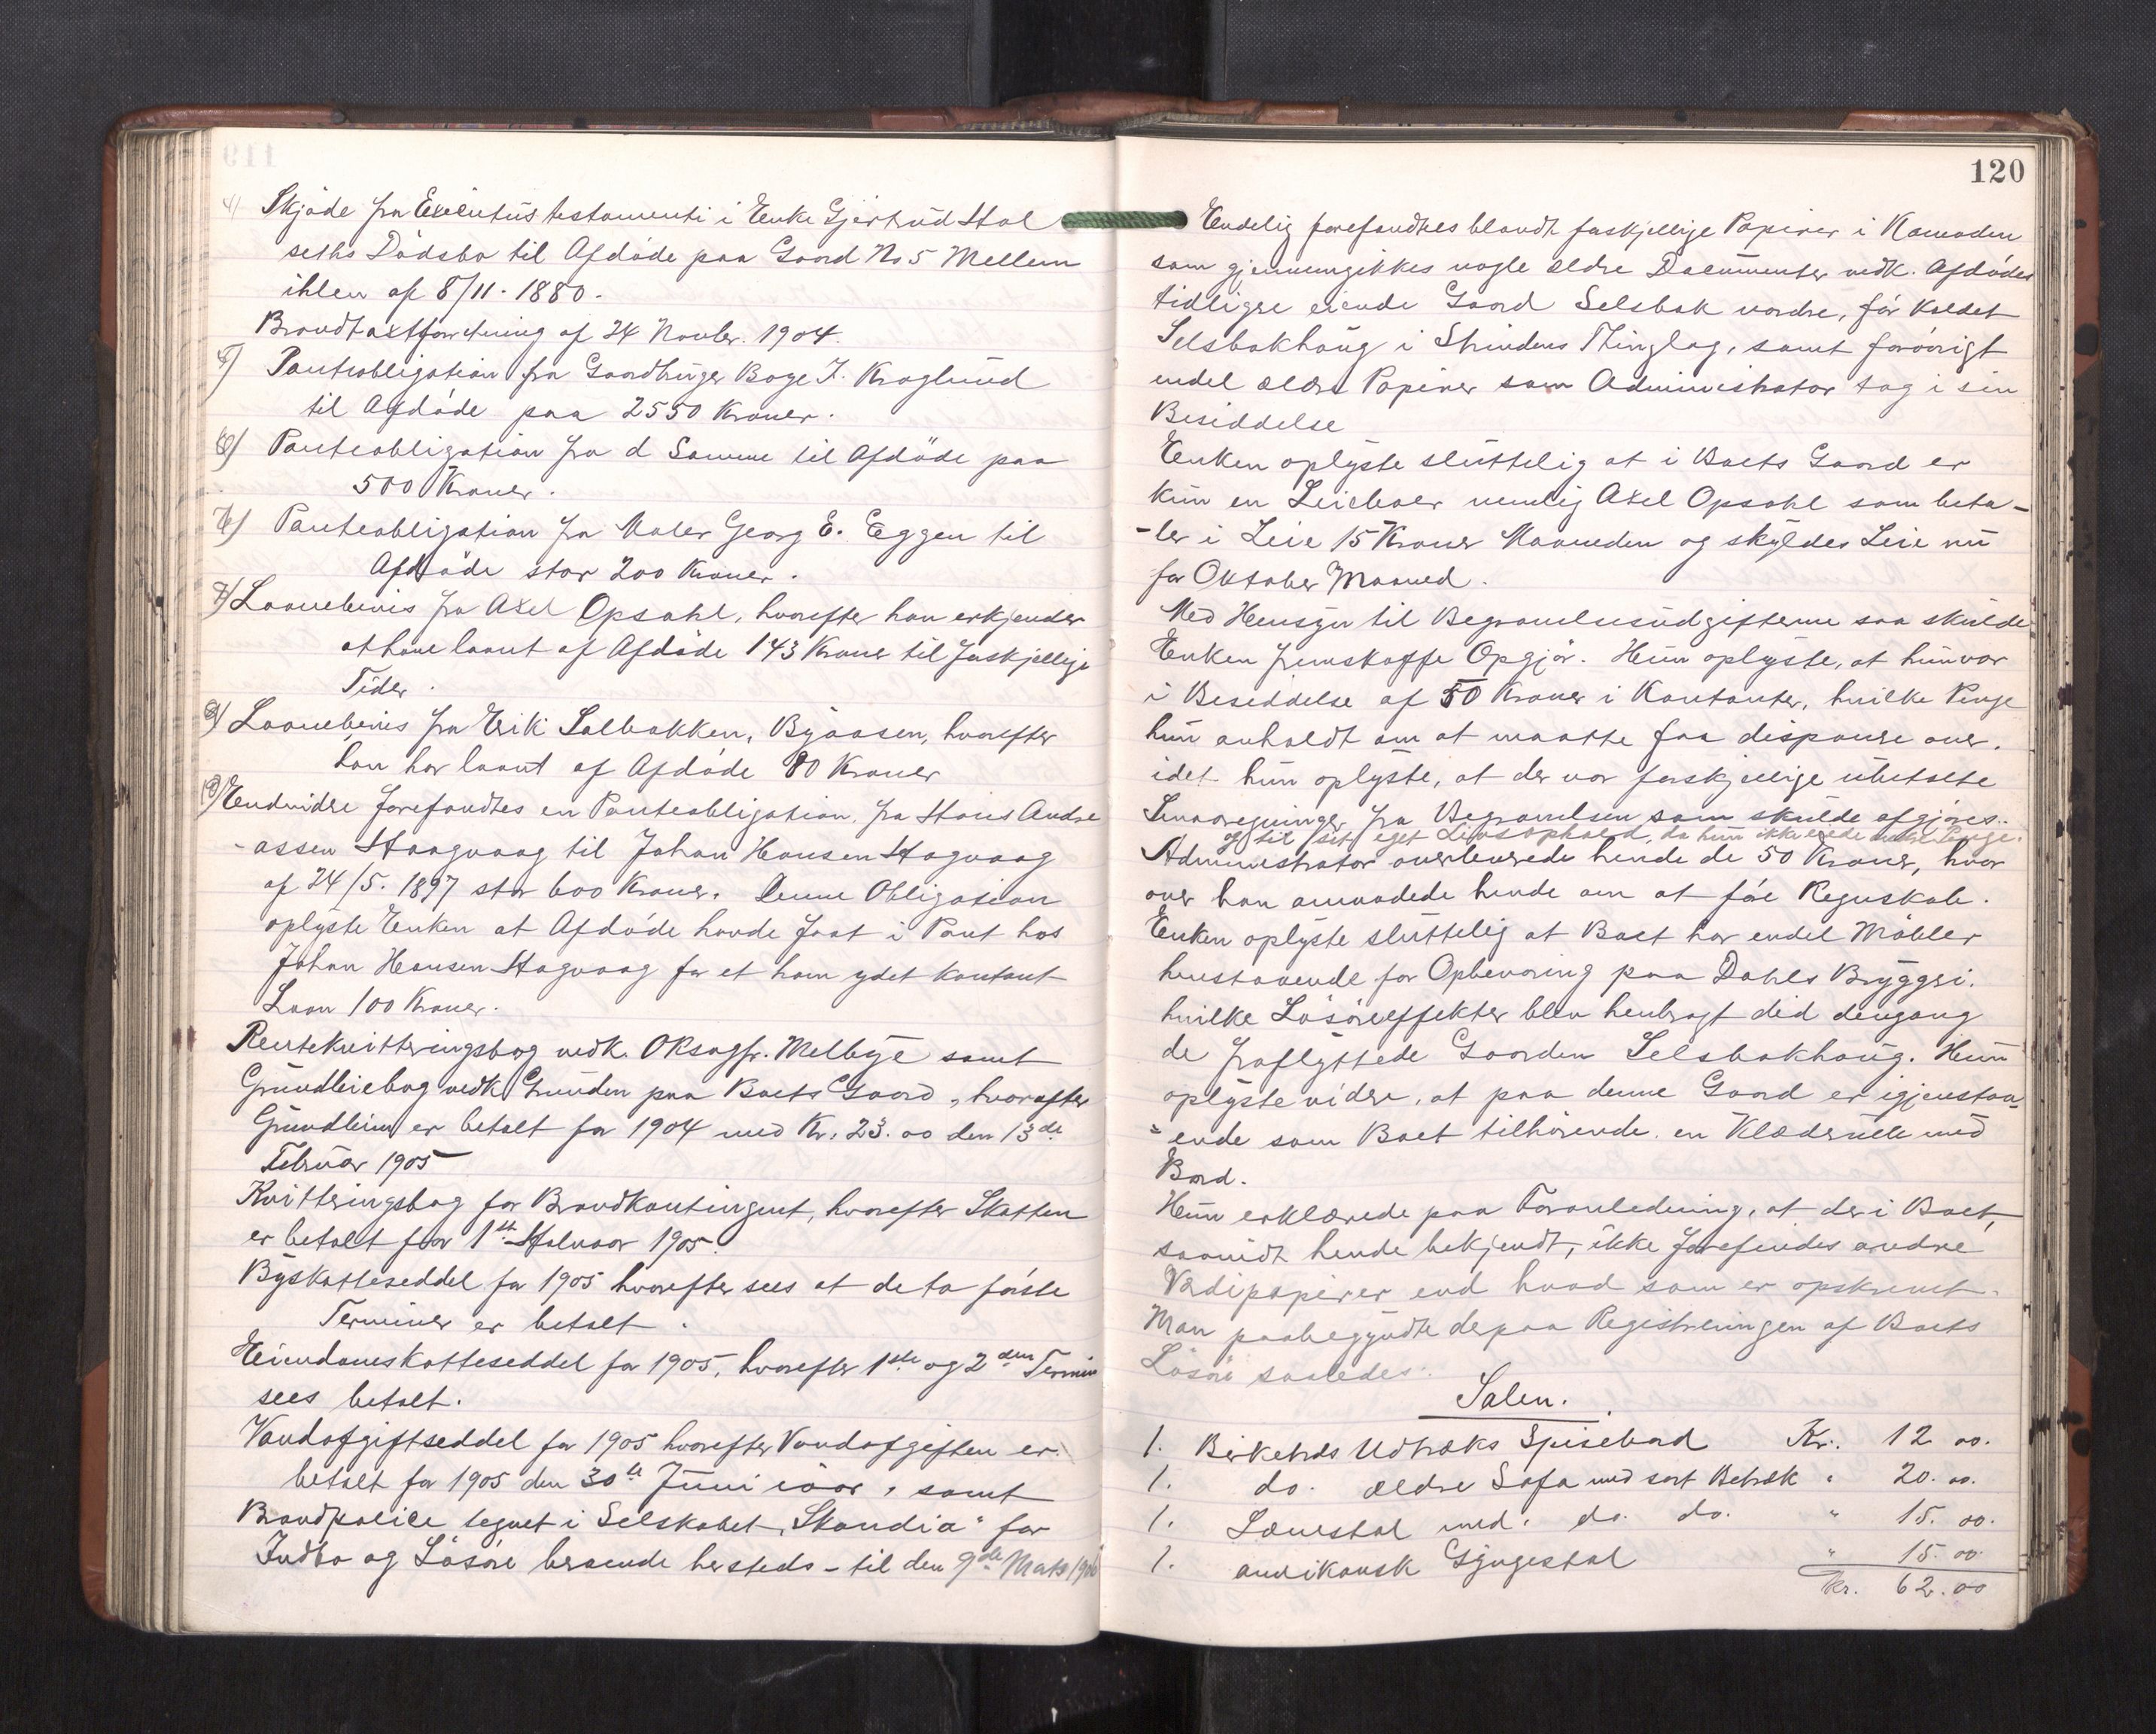 4) Skjøde fra Executus testamenti i Enke Gjertrud Stol
seths Dødsbo til Afdøde paa Gaard No 5 Mellem
ihlen af 8/11. 1880.
Brandtaxtforretning af 24 Novbr. 1904.
5) Panteobligation fra Gaardbruger Boye J. Kroglund
til Afdøde paa 2550 Kroner.
6) Panteobligation fra d Samme til Afdøde paa
500 Kroner.
7) Panteobligation fra Maler Georg E. Eggen til
Afdøde stor 200 Kroner.
Laanebevis fra Axel Opsahl, hvorefter han erkjender
at have laant af Afdøde 143 Kroner til forskjellige
Tider.
Laanebevis fra Erik Solbakken, Byaasen, hvorefter
han har laant af Afdøde 80 Kroner
Endvidere forefandtes en Panteobligation fra Hans Andre
-assen Haagvaag til Johan Hansen Hagvaag
af 24/5. 1897 stor 600 Kroner. Denne Obligation
oplyste Enken at Afdøde havde faat i Pant hos
Johan Hansen Hagvaag for et ham ydet kontant
Laan 100 Kroner.
Rentekvitteringsbog vedk. ORsagfr. Melbye samt
Grundleiebog vedk Grunden paa Boets Gaard, hvorefter
Grundleien er betalt for 1904 med Kr. 23.00 den 13de
Februar 1905
Kvitteringsbog for Brandkontingent, hvorefter Skatten
er betalt for 1ste Halvaar 1905.
Byskatteseddel for 1905 hvorefter sees at de to første
Terminer er betalt.
Eiendomsskatteseddel for 1905, hvorefter 1ste og 2den Termin
sees betalt.
Vandafgiftseddel for 1905 hvorefter Vandafgiften er
betalt for 1905 den 30te Juni iaar, samt
Brandpolice tegnet i Selskabet "Skandia" for
Indbo og Løsøre beroende hersteds - til den 9de Marts 1906
120
Endelig forefandtes blandt forskjellige Papirer i Komoden
som gjennemgikkes nogle ældre Documenter vedk. Afdødes
tidligere eiende Gaard Selsbak nordre, før kaldet
Selsbakhaug i Strindens Thinglag, samt forøvrigt
endel ældre Papirer som Administrator tog i sin
Besiddelse
Enken oplyste sluttelig at i Boets Gaard er
kun en Leieboer nemlig Axel Opsahl som beta-
-ler i Leie 15 Kroner Maaneden og skyldes Leie nu
for Oktober Maaned.
Med Hensyn til Begravelsesudgifterne saa skulde
Enken fremskaffe Opgjør. Hun oplyste, at hun var
i Besiddelse af 50 Kroner i Kontanter, hvilke Penge
hun anholdt om at maatte faa disponere over,
idet hun oplyste, at der var forskjellige ubetalte
Smaaregninger fra Begravelsen som skulde afgjøres..
og til sit eget Livsophold, da hun ikke eiede andre Penge.
Administrator overleverede hende de 50 Kroner, hvor
over han anmodede hende om at føre Regnskab.
Enken oplyste sluttelig at Boet har endel Møbler
henstaaende for Opbevaring paa Dahls Bryggeri.
hvilke Løsøreeffekter blev henbragt did dengang
de fraflyttede Gaarden Selsbakhaug. Hun
oplyste videre, at paa denne Gaard er igjenstaa-
-ende som Boet tilhørende en Klæderulle med
Bord.
Hun erklærede paa Foranledning, at der i Boet,
saavidt hende bekjendt, ikke forefindes andre
Værdipapirer end hvad som er opskrevet.
Man paabegyndte derpaa Registreringen af Boets
Løsøre saaledes:
Salen.
1. Birketræs Udtræks Spisebord Kr. 12 00.
1. do. ældre Sofa med sort Betræk " 20. 00.
1. Lænestol med. do. do. " 15. 00.
1. amrikansk Gyngestol " 15. 00.
Kr. 62.00